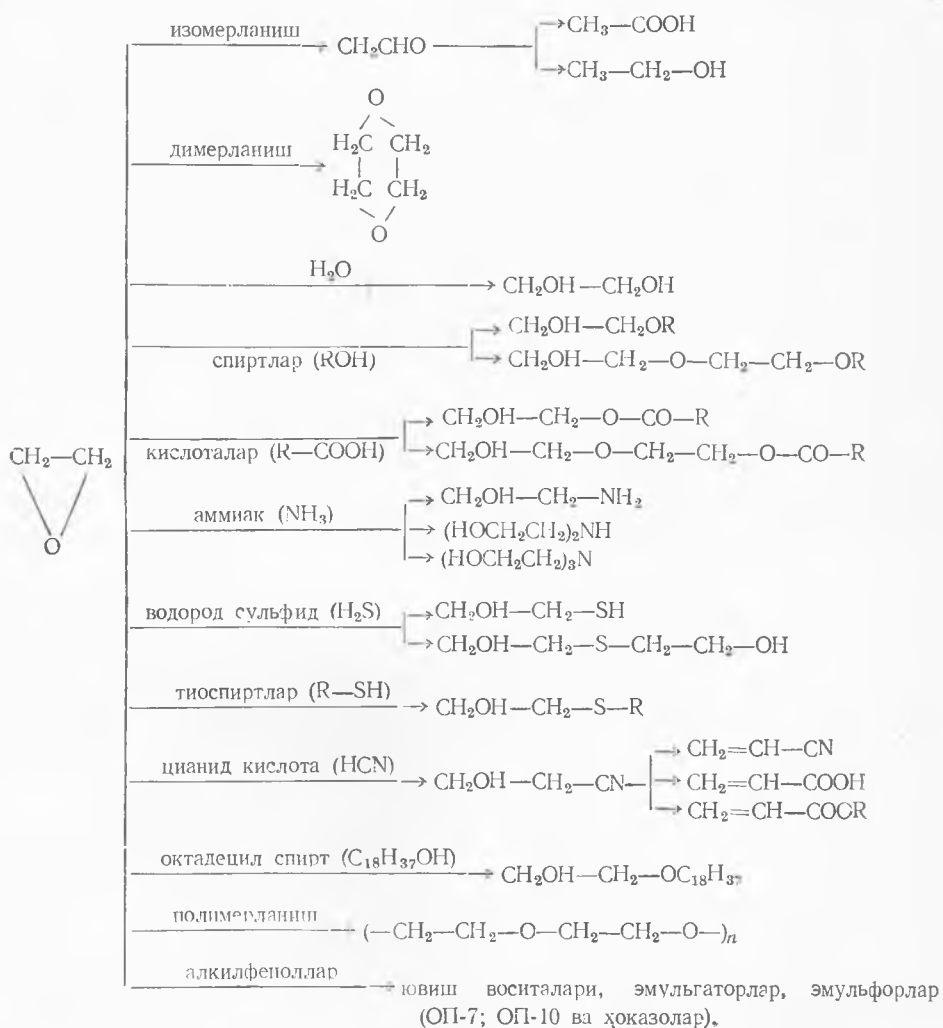 изомерланиш
CH₂CHO
CH₃—COOH
CH₃—CH₂—OH
димерланиш
O
H₂C CH₂
H₂C CH₂
O
H₂O
CH₂OH—CH₂OH
спиртлар (ROH)
CH₂OH—CH₂OR
CH₂OH—CH₂—O—CH₂—CH₂—OR
CH₂—CH₂
O
кислоталар (R—COOH)
CH₂OH—CH₂—O—CO—R
CH₂OH—CH₂—O—CH₂—CH₂—O—CO—R
аммиак (NH₃)
CH₂OH—CH₂—NH₂
(HOCH₂CH₂)₂NH
(HOCH₂CH₂)₃N
водород сульфид (H₂S)
CH₂OH—CH₂—SH
CH₂OH—CH₂—S—CH₂—CH₂—OH
тиоспиртлар (R—SH)
CH₂OH—CH₂—S—R
цианид кислота (HCN)
CH₂OH—CH₂—CN
CH₂=CH—CN
CH₂=CH—COOH
CH₂=CH—COOR
октадецил спирт (C₁₈H₃₇OH)
CH₂OH—CH₂—OC₁₈H₃₇
полимерланиш
(—CH₂—CH₂—O—CH₂—CH₂—O—)n
алкилфеноллар
ювиш воситалари, эмульгаторлар, эмульфорлар
(ОП-7; ОП-10 ва ҳоказолар).